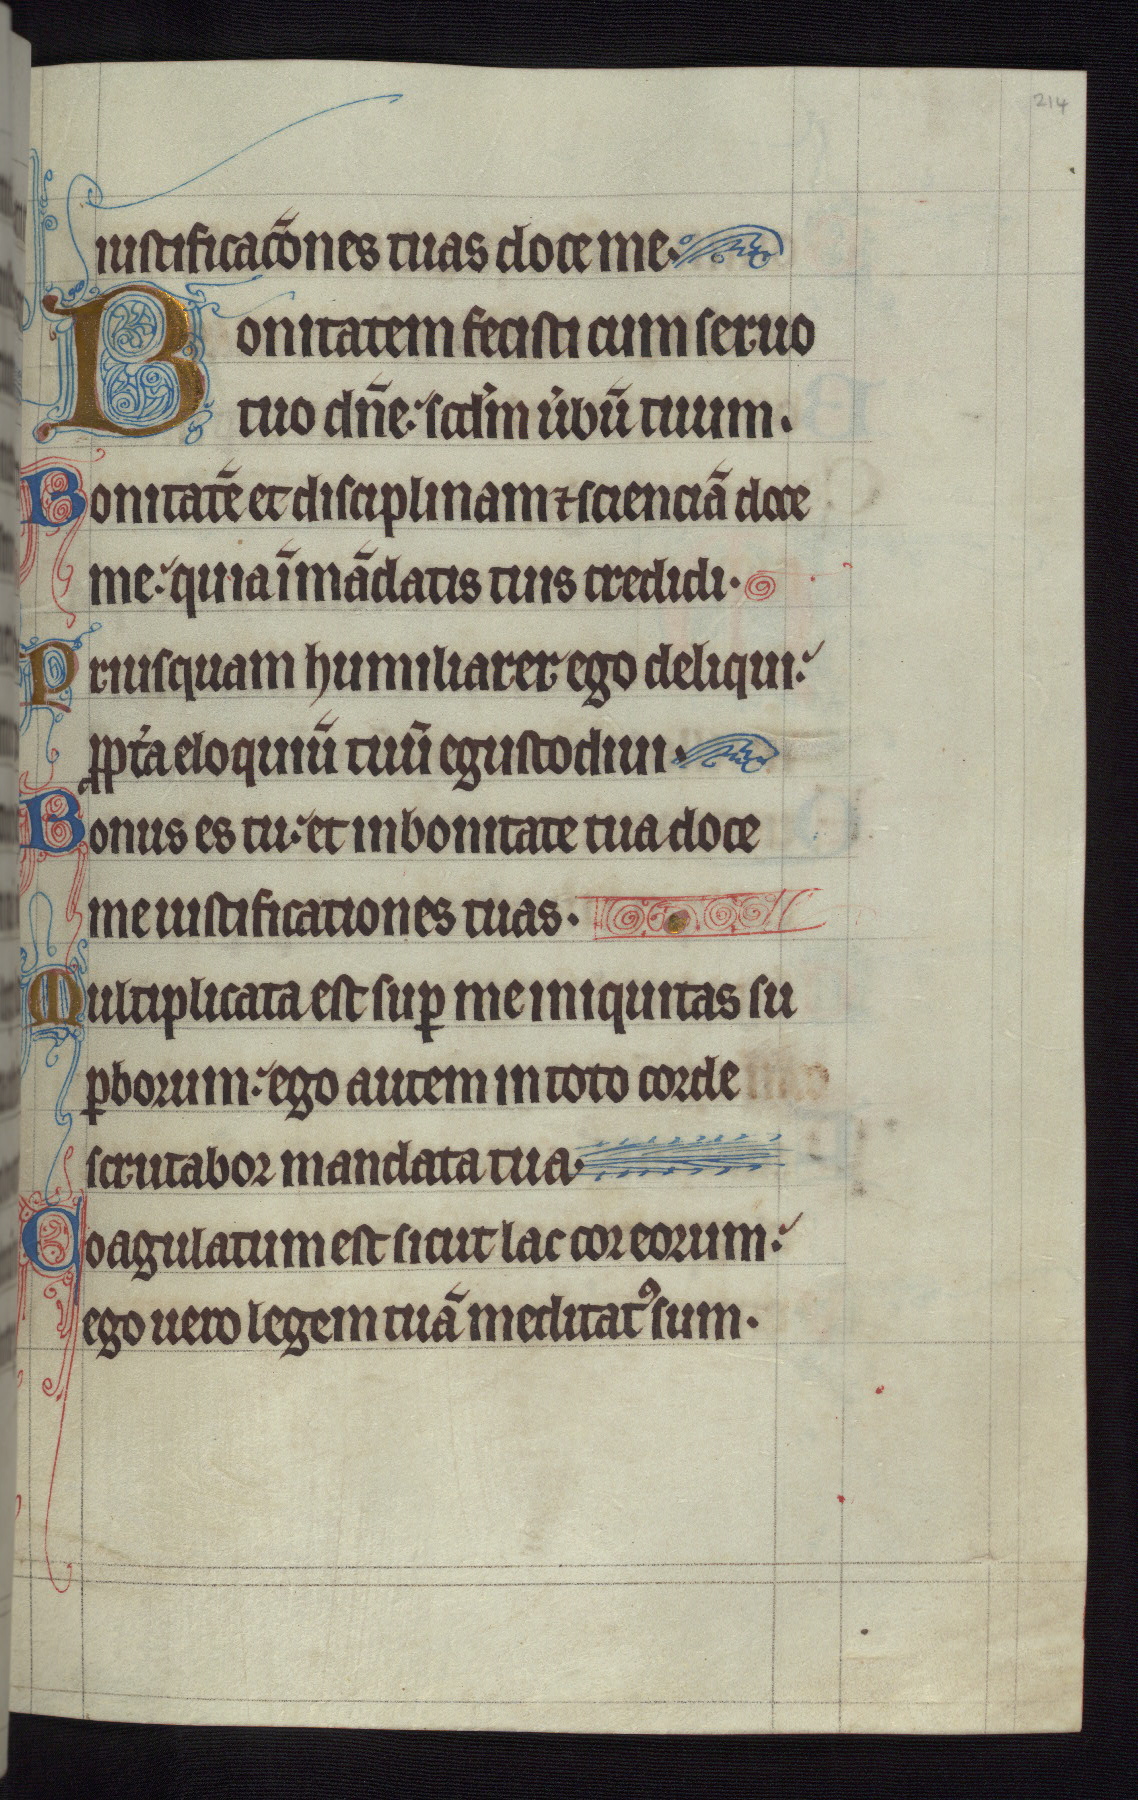 214
iustificac̃ones tuas doce me.
Bonitatem fecisti cum seruo
tuo dñe: scd'm u'bũ tuum.
Bonitatẽ et disciplinam ⁊ scienciã doce
me: quia ĩ mãdatis tuis credidi.
Priusquam humiliarer ego deliqui:
ꝓpt'a eloquiũ tuũ egustodiui.
Bonus es tu: et in bonitate tua doce
me iustificationes tuas.
Multiplicata est suꝑ me iniquitas su
ꝑborum: ego autem in toto corde
scrutabor mandata tua.
Coagulatum est sicut lac cor eorum:
ego uero legem tuã meditatꝰ sum.